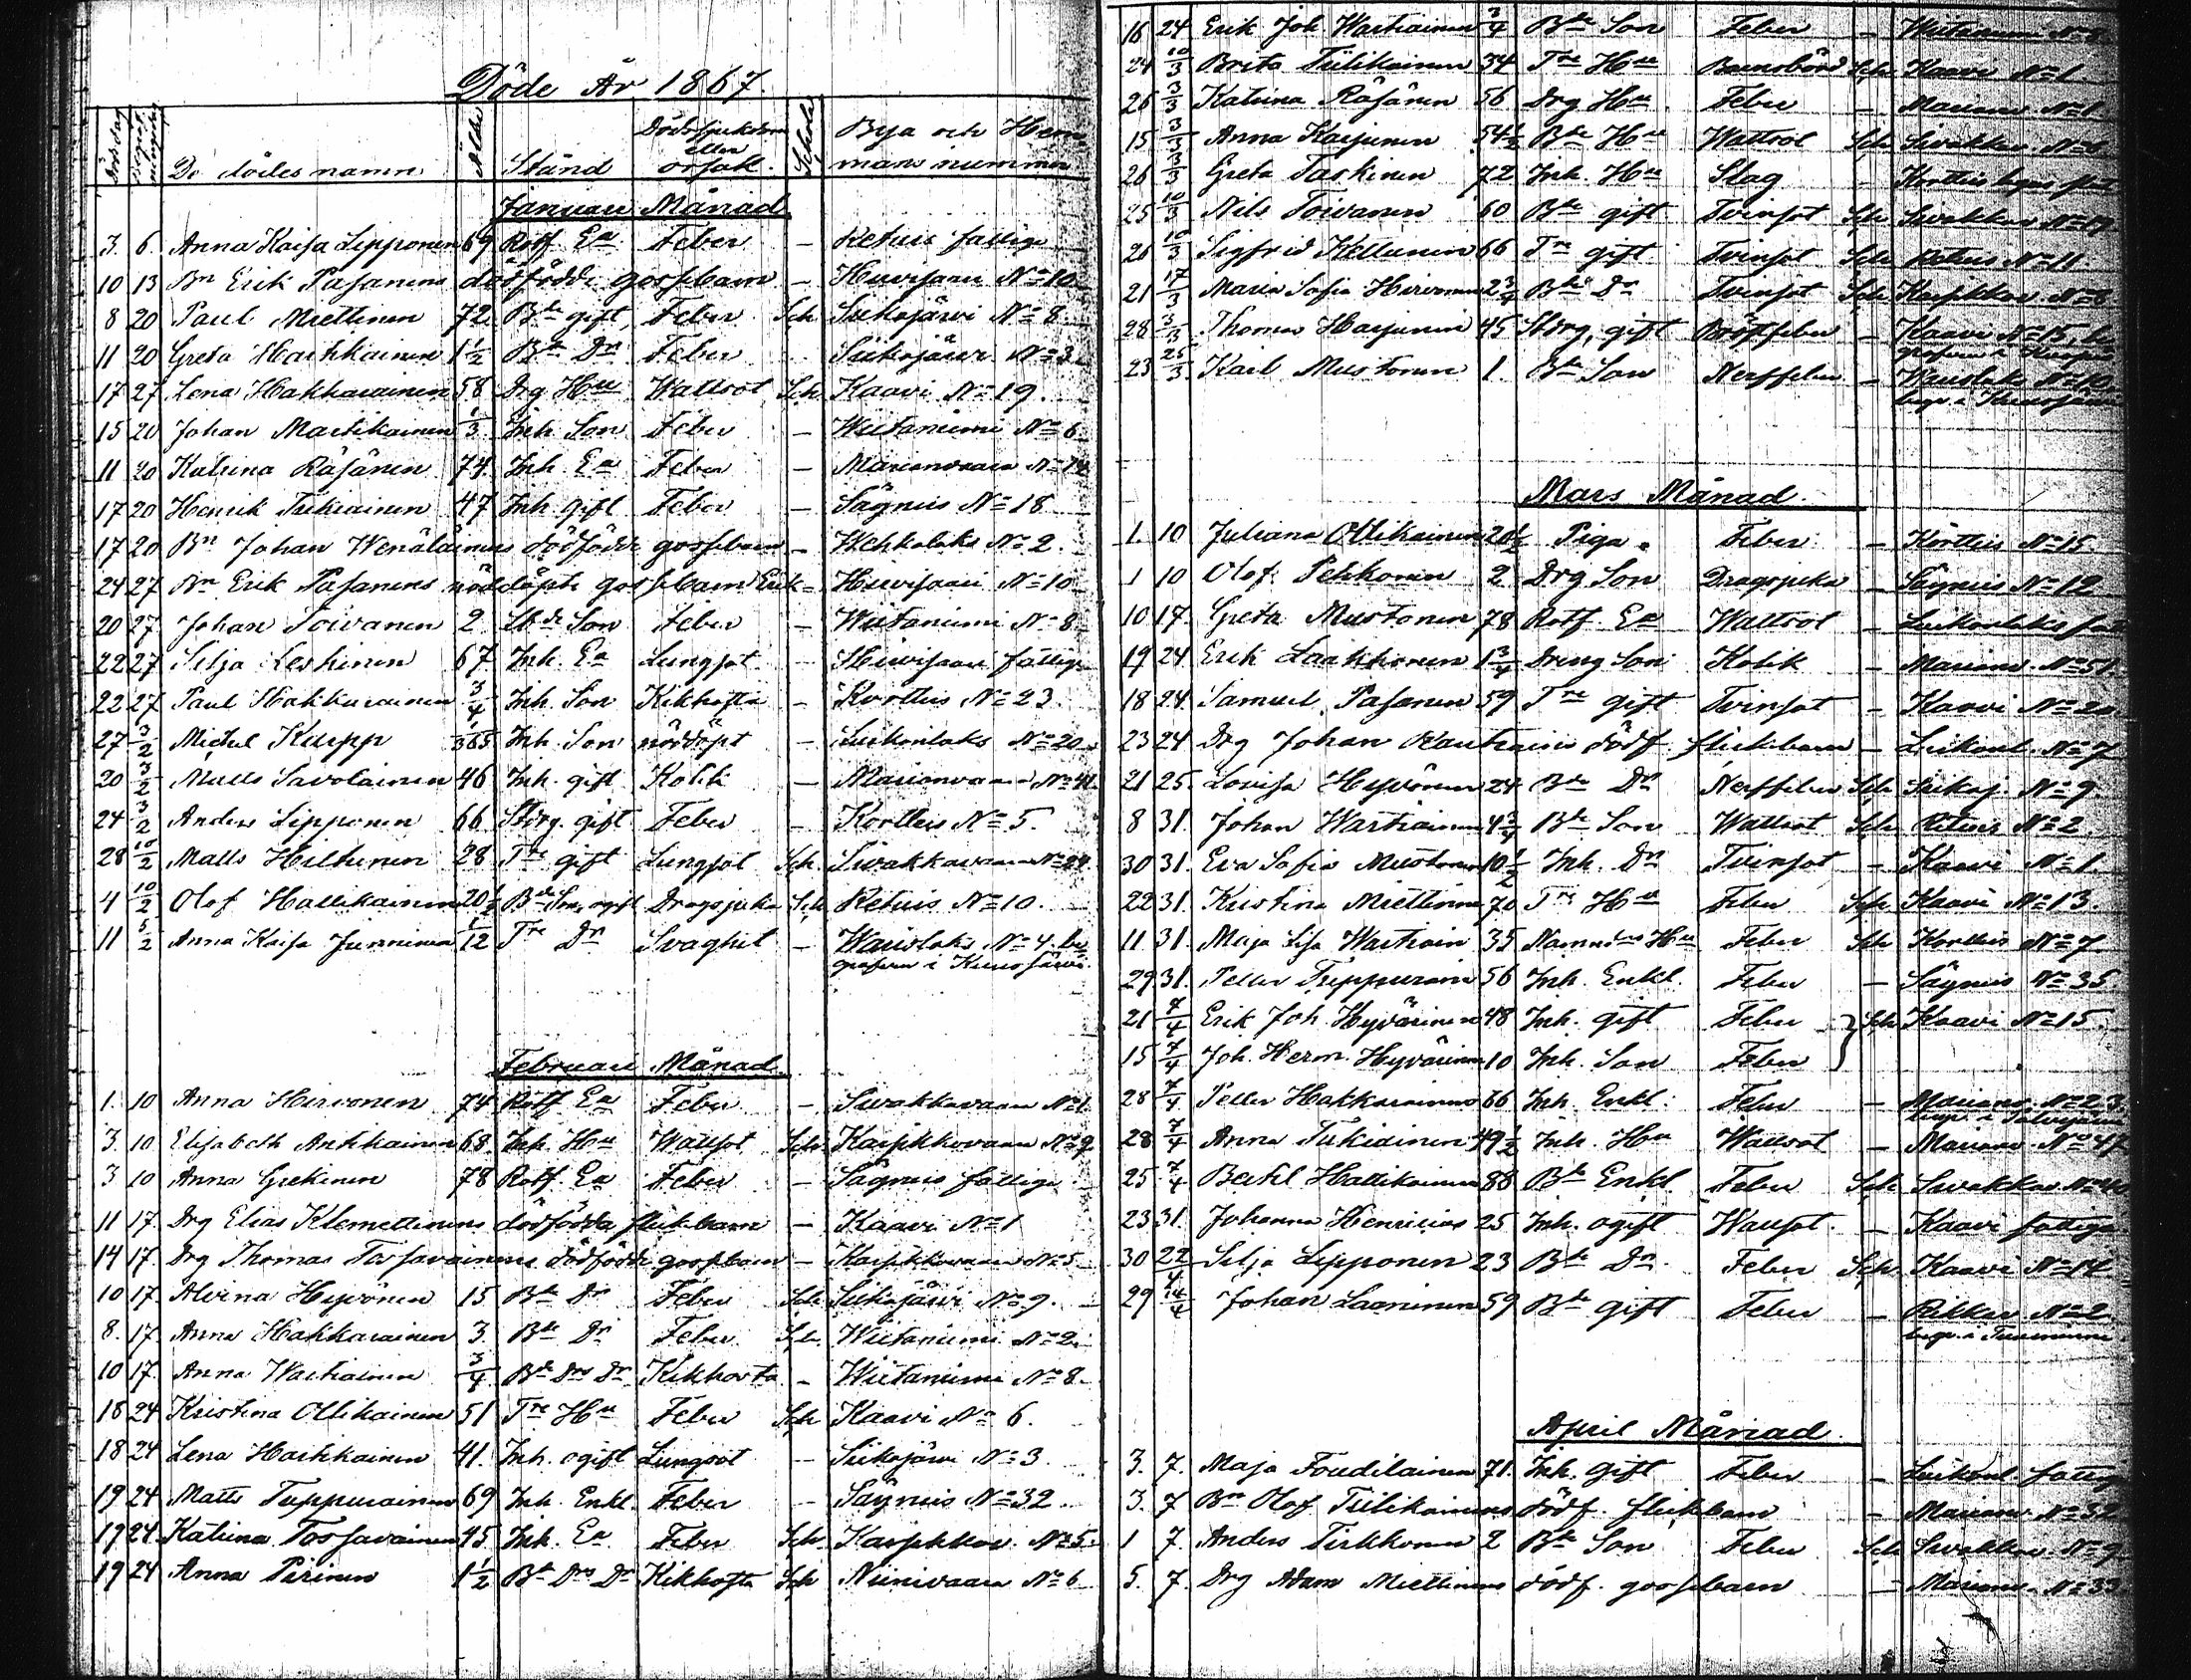 Döde År 1867.
Dödsdag Begrafningsdag De dödes namn Ålder Stånd Dödssjukdom eller orsak. Byа och Hemmans nummer
Januari Månad
3. 6. Anna Kaisa Lipponen 69 Rotf. Ea Feber – Retuis fattige
10 13 Bn Erik Pasanens dödfödde gossbarn – Huvisaari No 10
8 20 Paul Miettinen 72 Bde gift, Feber Sch Siikajärvi No 8
11 20 Greta Hartikainen 1½ Bde Dr Feber Siikajärvi No 3
17 27 Lena Hakkarainen 58 Drg Hu Wattsot Sch. Kaavi No 19.
15 20 Johan Martikainen 1/3 Inh Son Feber – Wiitaniemi No 6
11 20 Katrina Räsänen 74. Inh. Ea Feber – Marianvaara No 12
17 20 Henrik Tukiainen 47 Inh gift Feber – Sägnius No 18
17 20 Bn Johan Wenäläinens dödfödde gossbarn – Wehkalaks No 2.
24 27 Bn Erik Pasanens nöddöpte gossbarn Erik – Huvisaari No 10
20 27. Johan Toivanen 2 Bde Son Feber – Wiitaniemi No 8
22 27 Silja Leskinen 67 Inh. Ea Lungsot – Huvisaari fattige
22 27 Paul Hakkarainen 3/4 Inh. Son Kikhosta – Korttis No 23.
27 3/2 Michel Karpp 1/365 Inh. Son nöddöpt – Luikonlaks No 20.
20 3/2 Matts Savolainen 46 Inh. gift Kolik – Marianvaara No 41.
24 3/2 Anders Lipponen 66 Storg. gift Feber – Korttis No 5.
28 10/2 Matts Hiltunen 28 Tre gift Lungsot Sch. Sivakkavaara No 24
4 10/2 Olof Hallikainen 20½ Bde Son, ogift Dragsjuka Sch Retuis No 10.
11 5/2 Anna Kaisa Junninen 1/12 Tre Dr Svaghet – Wausloks No 4. be
grafven i Kuusjärvi.
Februari Månad
1. 10 Anna Hirvonen 74 Rotf Ea Feber – Sivakkavaara No 1.
3. 10 Elisabeth Antikainen 68. Inh. Hu Wattsot Sch. Karsikkovaara No 9.
3 10 Anna Grekinen 78 Rotf. Ea Feber – Sägnius fattige
11 17. Drg Elias Klemettinens dödfödda flickbarn – Kaavi No 1
14 17. Drg Thomas Tossavainens dödfödde gossbarn – Karsikkovaara No 5
10 17. Alvina Hyvönen 15 Bde Dr Feber Sch Siikajärvi No 9.
8. 17. Anna Hakkarainen 3. Bde Dr Feber Sch. Wiitaniemi No 2.
10 17. Anna Wartiainen 3/4 Bde Drs Dr Kikhosta – Wiitaniemi No 8.
18 24 Kristina Ollikainen 51 Tre Hu Feber Sch Kaavi No 6.
18 24 Lena Hartikainen 41. Inh. ogift Lungsot – Siikajärvi No 3.
19 24 Matts Tuppurainen 69 Inh. Enkl. Feber – Sägnius No 32.
19 24. Katrina Tossavainen 45 Inh. Ea Feber Sch. Karsikkov. No 5.
19 24 Anna Pirinen 1½ Bde Drs Dr Kikhosta Sch Niinivaara No 6
16 24 Erik Joh Wartiainen 3/4 Bde Son Feber – Wiitaniemi No 8
24 10/3 Brita Tiilikainen 34 Tre Hu Barnsbörd Sch Kaavi No 1
26 3/3 Katrina Räsänen 56 Drg Hu Feber – Marianv. No 1
15 3/3 Anna Karjunen 54½ Bde Hu Wattsot Sch Sivakkav. No 6
26 3/3 Greta Taskinen 72 Inh. Hu Slag – Korttis
25 10/3 Nils Toivanen 60 Bde gift Tvinsot Sch Sivakkav. No 19
26 10/3 Sigfrid Kettunen 66 Tre gift Tvinsot Sch Retuis No 11.
21 17/3 Maria Sofia Hirvonen 2¾ Bde Dr Tvinsot Sch Karsikkov. No 8
28 3/3 Thomas Harjunen 45 Storg. gift Bröstfeber – Kaavi No 15, be
grafven i Kuopio
23 25/3 Karl Mustonen 1. Bde Son Nerffeber – Wausloks No 10.
begr. i Kuusjärvi
Mars Månad.
1. 10 Juliana Ollikainen 20½ Piga. Feber – Korttis No 15.
1 10 Olof Pekkonen 2 Drg Son Dragsjuka – Sägnius No 12
10 17. Greta Mustonen 78 Rotf Ea Wattsot – Luikonlaks fat
19 24 Erik Laakkonen 1¾ Dreng Son Kolik – Marianv. No 51.
18 24. Samuel Pasanen 59 Tre gift Tvinsot – Kaavi No 20
23 24 Drg Johan Rautiains dödf. flickbarn – Luikonl. No 7
21 25. Lovisa Hyvönen 24 Bde Dr Nerffeber Sch Siikaj. No 9
8 31. Johan Wartiainen 4¾ Bde Son Wattsot Sch Retuis No 2
30 31. Eva Sofia Mustonen 10½ Inh. Dr Tvinsot – Kaavi No 1.
22 31. Kristina Miettinen 70 Tre Hu Feber Sch Kaavi No 13.
11 31. Maja Lisa Wartiain 35 Hu Feber Sch Korttis No 7
29 31. Petter Tuppurainen 56 Inh. Enkl. Feber – Sägnius No 35
21 7/4 Erik Joh. Hyvärinen 48 Inh. gift Feber } Sch Kaavi No 15.
15 7/4 Joh. Herm. Hyvärinen 10 Inh. Son Feber
28 7/4 Petter Hakkarainen 66 Inh. Enkl. Feber – Marianv. No 23.
28 7/4 Anna Tukiainen 49½ Inh. Hu Wattsot – Marianv. No 47
25 7/4 Bertil Hallikainen 88 Bde Enkl Feber Sch Sivakkav. No 4
23 31. Johanna Henricius 25 Inh. ogift Wattsot – Kaavi fattiga
30 22/4 Silja Lipponen 23 Bde Dr. Feber Sch. Kaavi No 14
29 14/4 Johan Laaninen 59 Bde gift Feber – Rikkav. No 2
April Månad.
3. 7. Maja Foudilainen 71. Inh. gift Feber – Luikonl. fattig
3. 7 Bn Olof Tiilikainens dödf. flickbarn – Marianv. No 32
1 7. Anders Tirkkonen 2 Bde Son Feber Sch Sivakkav. No 9
5. 7. Drg Adam Miettinens dödf. gossbarn – Marianv. No 33